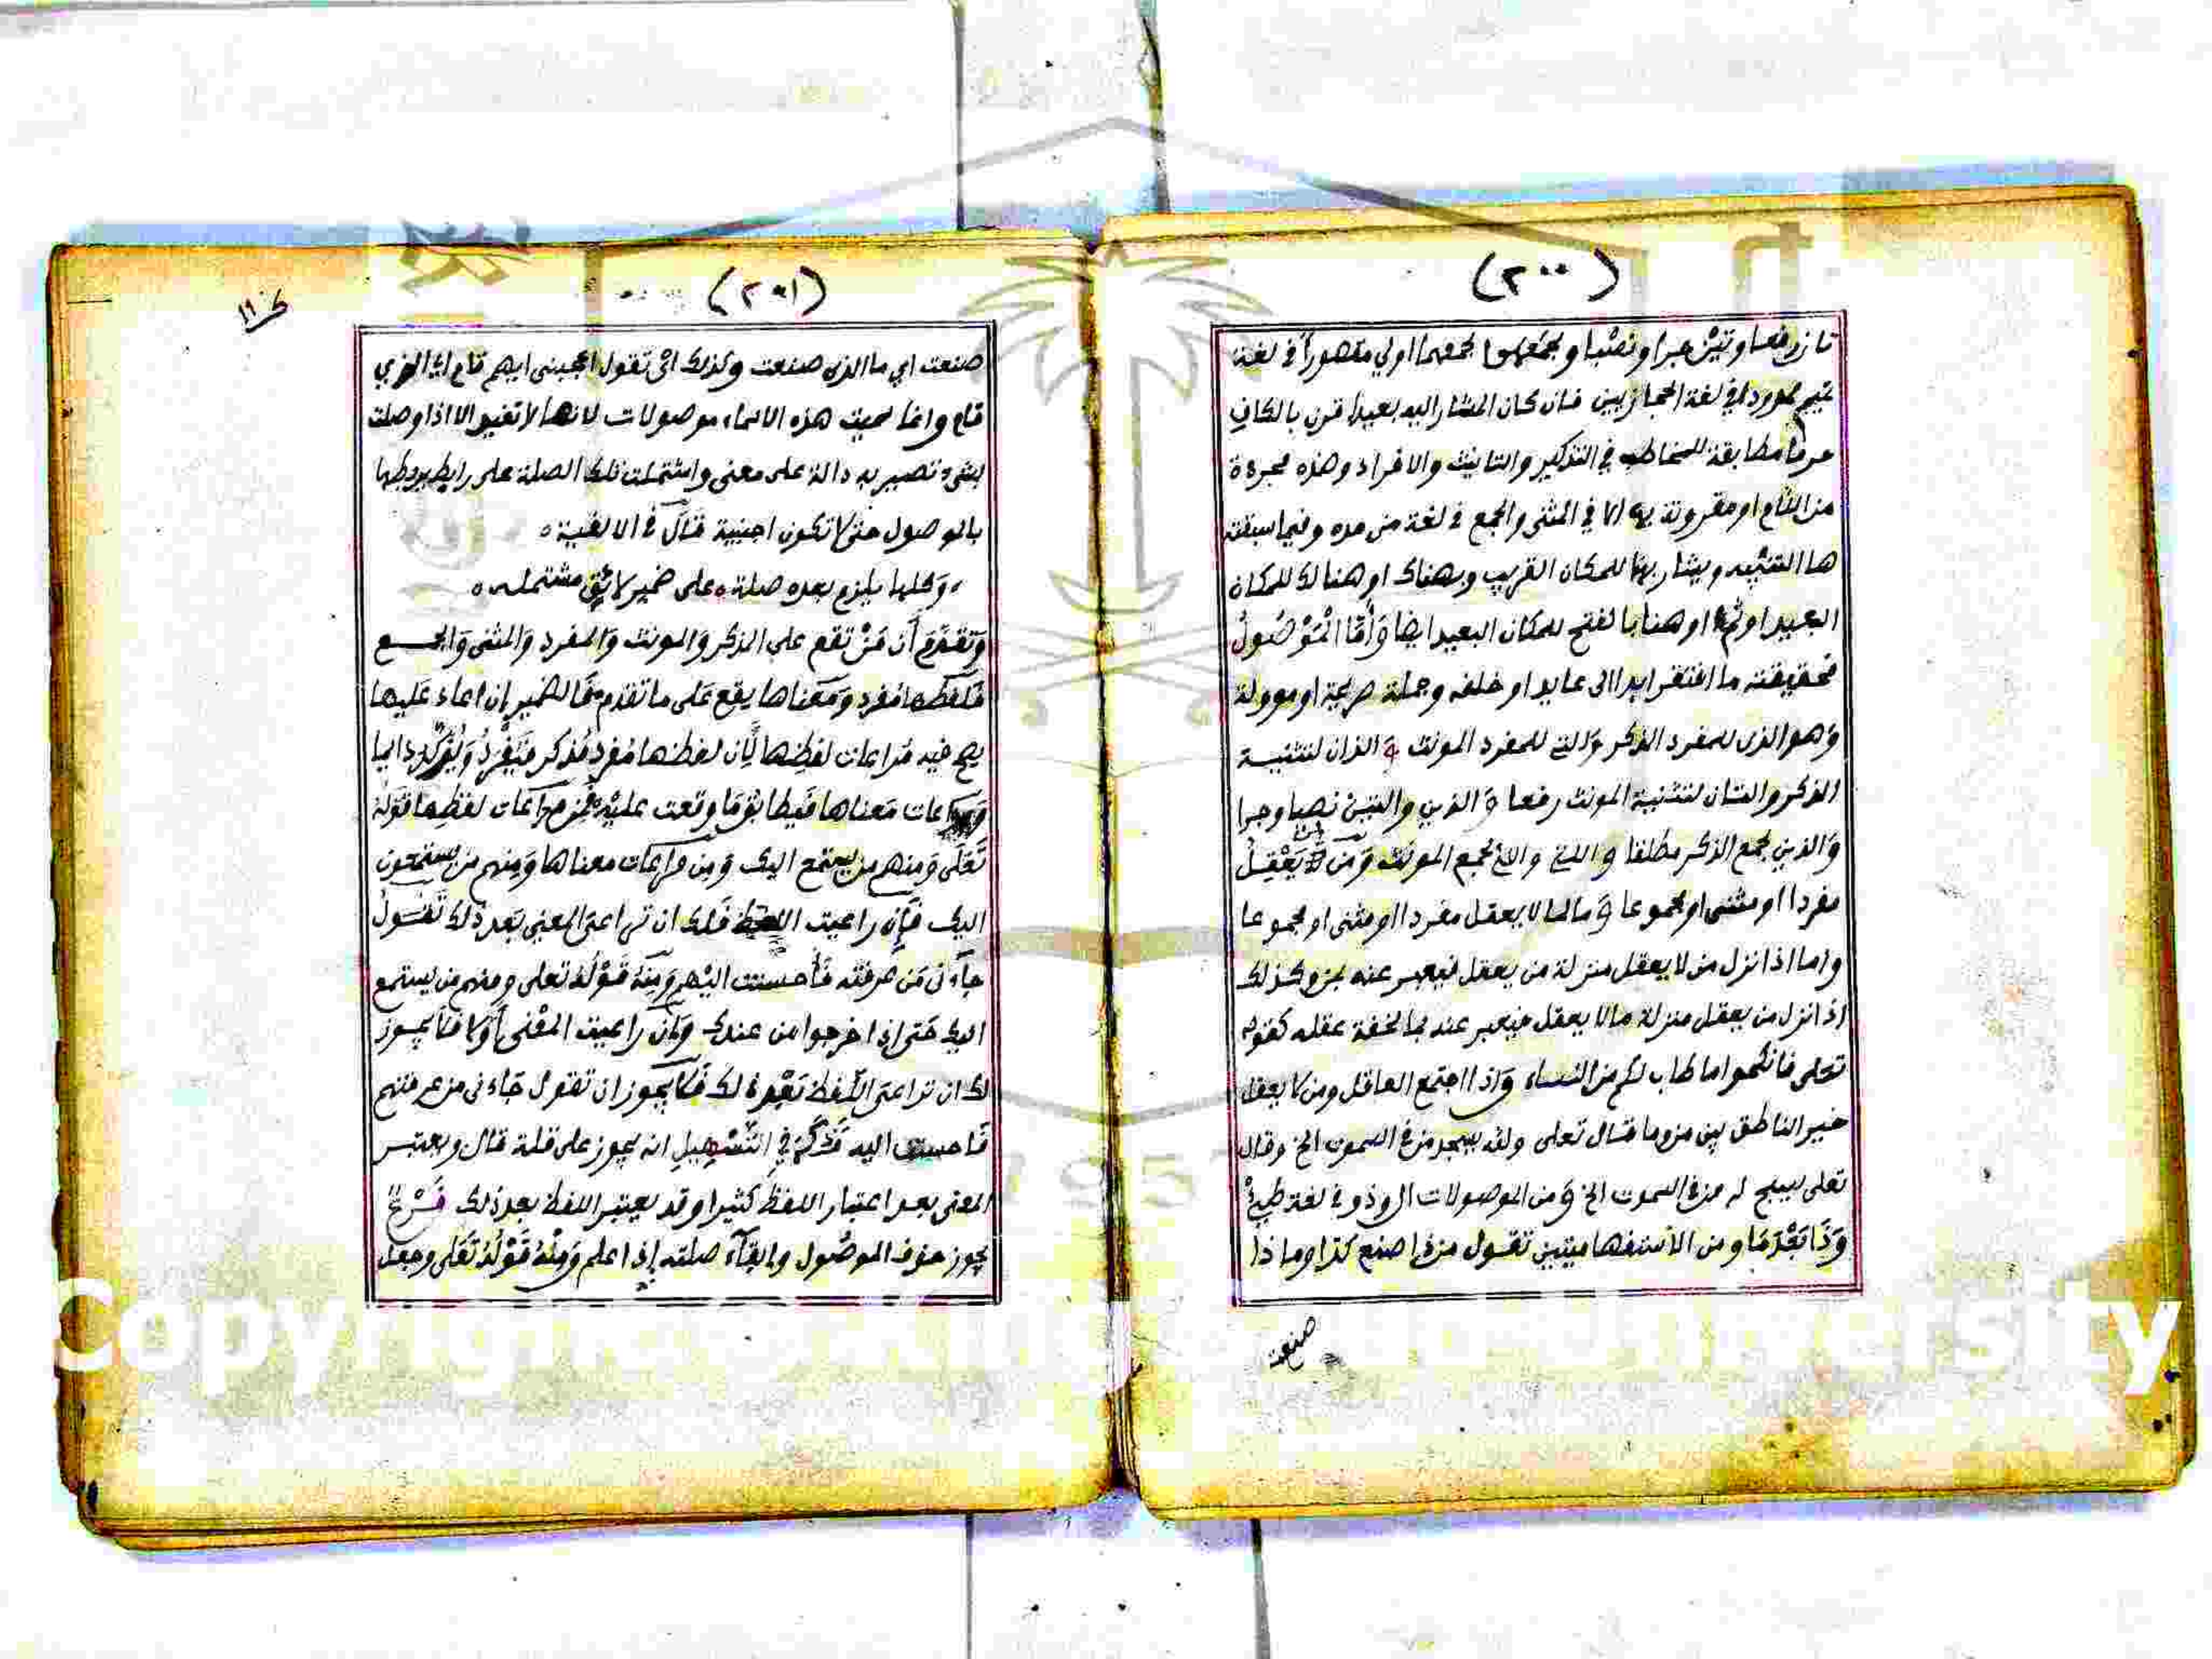 (٢٠٠)
تان رفعا وتين جرا ونصبا وبجمعهما اولي مقصوراً في لغة
تميم ممدودا في لغة الحجازيين فان كان المشار اليه بعيدا قرن بالكاف
حرفا مطابقة للمخاطب في التذكير والتانيث والافراد وهذه مجردة
من اللام او مقرونة بها الا في المثنى والجمع في لغة من مده وفيما سبقته
ها التنبيه ويشار بهنا للمكان القريب وبهناك او هنالك للمكان
البعيد او ثم او هنا بالفتح للمكان البعيد ايضا وَأَمَّا الْمَوْصُولُ
فحقيقته ما افتقر ابدا الى عايد او خلفه وجملة صريحة او موولة
وَهو الذي للمفرد الذكر وَالتي للمفرد المونث وَ الذان لتثنية
الذكر والتان لتثنية المونث رفعا وَ الذين والتينْ نصبا وجرا
وَالذين لجمع الذكر مطلقا وَ التي والاي لجمع المونث وَمَن لمن يَعْقِلُ
مفردا او مثنى او مجموعا وَ ما لما لا يعقل مفردا او مثنى او مجموعا
واما اذا نزل من لا يعقل منزلة من يعقل فيعبر عنه بمن وكذلك
اذ انزل من يعقل منزلة مالا يعقل فيعبر عنه بما لخفة عقله كقوله
تعلى فانكحوا ما طاب لكم من النساء وَاذا اجتمع العاقل ومن لا يعقل
خير الناطق بين من وما قال تعلى ولله يسجد من في السموت الخ وقال
تعلى يسبح له من في السموت الخ وَ من الموصولات ال وذو في لغة طيئ
وَذَا بَعْدَ مَا ومن الأستفهاميتين تقول من ذا صنع كذا وما ذا
صنعت
(٢٠١)
صنعت اي ما الذي صنعت وكذلك ايْ تقول اعجبني ايهم قام اي الذي
قام وانما سميت هذه الاسماء موصولات لانها لا تفيد الا اذا وصلت
بشيء تصير به دالة على معنى واشتملت تلك الصلة على رابط يربطها
بالموصول حتى لا تكون اجنبية قَالَ في الالفية ه
وَكلها يلزم بعده صلة ه على ضمير لائق مشتمله ه
وَتقدَّمَ أَن مَنْ تقع على الذكر والمونث وَالمفرد وَالمثنى وَالجمع
فَلَفظها مفرد وَمَعناها يقع عَلى ما تقدم فَالضمير إن اعاد عَليها
يصح فيه مُراعات لفظِها لِأَن لفظها مفرد مُذكر فَيُفْرَدُ وَيُذَكَّرُ دايما
وَمراعات مَعناها فَيطابق مَا وقعت عليه فَمن مراعَات لفظِها قَولهُ
تَعَلَى وَمنهم من يستمع اليك وَمِن مراعَات معناها وَمِنهم من يستمعون
اليك فَإِن راعيت اللفظ فَلك ان تراعىَ المعنى بَعد ذلك تَقُولُ
جآءَني مَن عرفته فَأحسنت اليْهم وَمِنهُ قَوْلُهُ تعلى ومنهم من يستمع
اليك حَتى إذا خرجوا من عندك وَإن راعيت المعْنى أَوَّلا فلا يجوز
لك ان تراعىَ اللَّفظ بَعْدهُ لك فَلا يجوز ان تقول جَاءني من عرفتهم
فَاحسنت اليه قَدْ ذكَرَ في التَّسْهِيلِ انه يجوز على قلة قال ويعتبر
المعنى بعد اعتبار اللفظ كثيرا وقد يعتبر اللفظ بعد ذلك فَرْعٌ
يجوز حذف الموصُول وابقآء صلته إذا علم وَمِنْهُ قَوْلُهُ تَعَلى وجعل